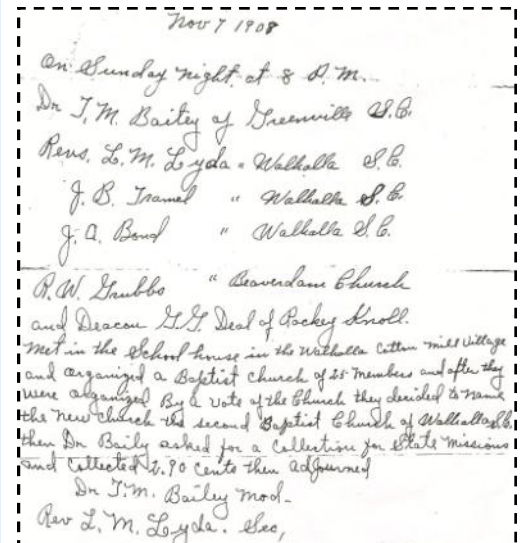 Nov 7 1908
On Sunday night at 8 P.M.
Dr T. M. Bailey of Greenville S.C.
Revs. L. M. Lyda " Walhalla S.C.
J. B. Tramel " Walhalla S.C.
J. A. Bond " Walhalla S.C.
R. W. Grubbs " Beaverdam Church
and Deacon G. G. Deal of Rockey Knoll.
Met in the School house in the Walhalla Cotton Mill Village
and organized a Baptist Church of 25 Members and after they
were organized By a vote of the Church they decided to name
the New Church the second Baptist Church of Walhalla S.C.
then Dr Baily asked for a Collection for State Missions
and Collected 2.90 cents then adjourned
Dr T. M. Bailey Mod-
Rev L. M. Lyda. Sec,